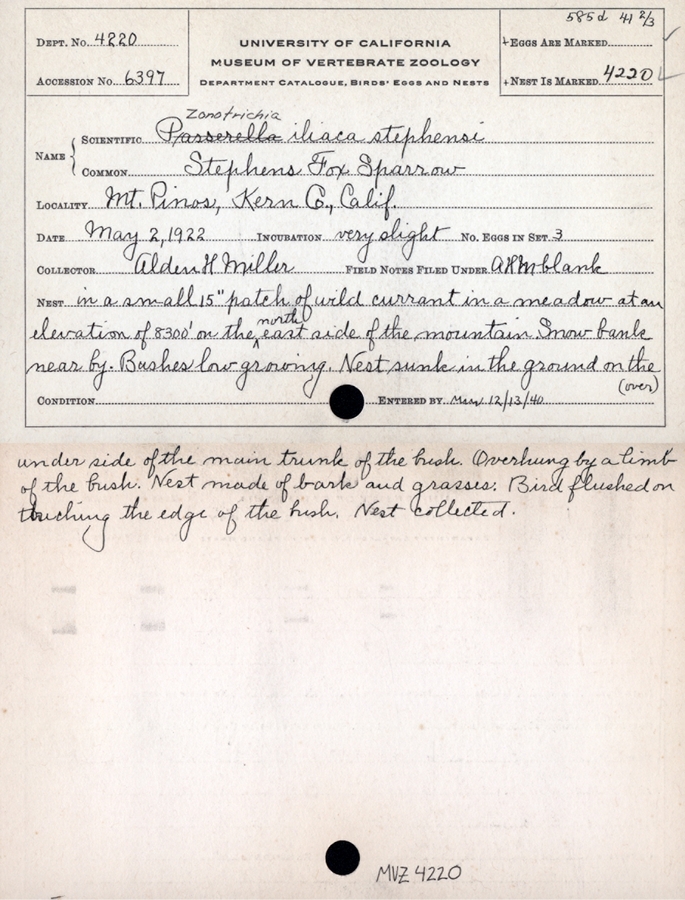 585d 41 2/3
DEPT. NO. 4220
UNIVERSITY OF CALIFORNIA
+EGGS ARE MARKED
MUSEUM OF VERTEBRATE ZOOLOGY
ACCESSION NO. 6397
DEPARTMENT CATALOGUE, BIRDS' EGGS AND NESTS
+NEST IS MARKED 4220
Zonotrichia
NAME
SCIENTIFIC Passerella iliaca stephensi
COMMON Stephens Fox Sparrow
LOCALITY Mt. Pinos, Kern Co., Calif.
DATE May 2, 1922 INCUBATION very slight NO. EGGS IN SET 3
COLLECTOR Alden H Miller FIELD NOTES FILED UNDER AHM blank
NEST in a small 15" patch of wild currant in a meadow at an
north
elevation of 8300' on the east side of the mountain. Snow bank
near by. Bushes low growing. Nest sunk in the ground on the
(over)
CONDITION ENTERED BY 12/13/40
under side of the main trunk of the bush. Overhung by a limb
of the bush. Nest made of bark and grasses. Bird flushed on
touching the edge of the bush. Nest collected.
MVZ 4220